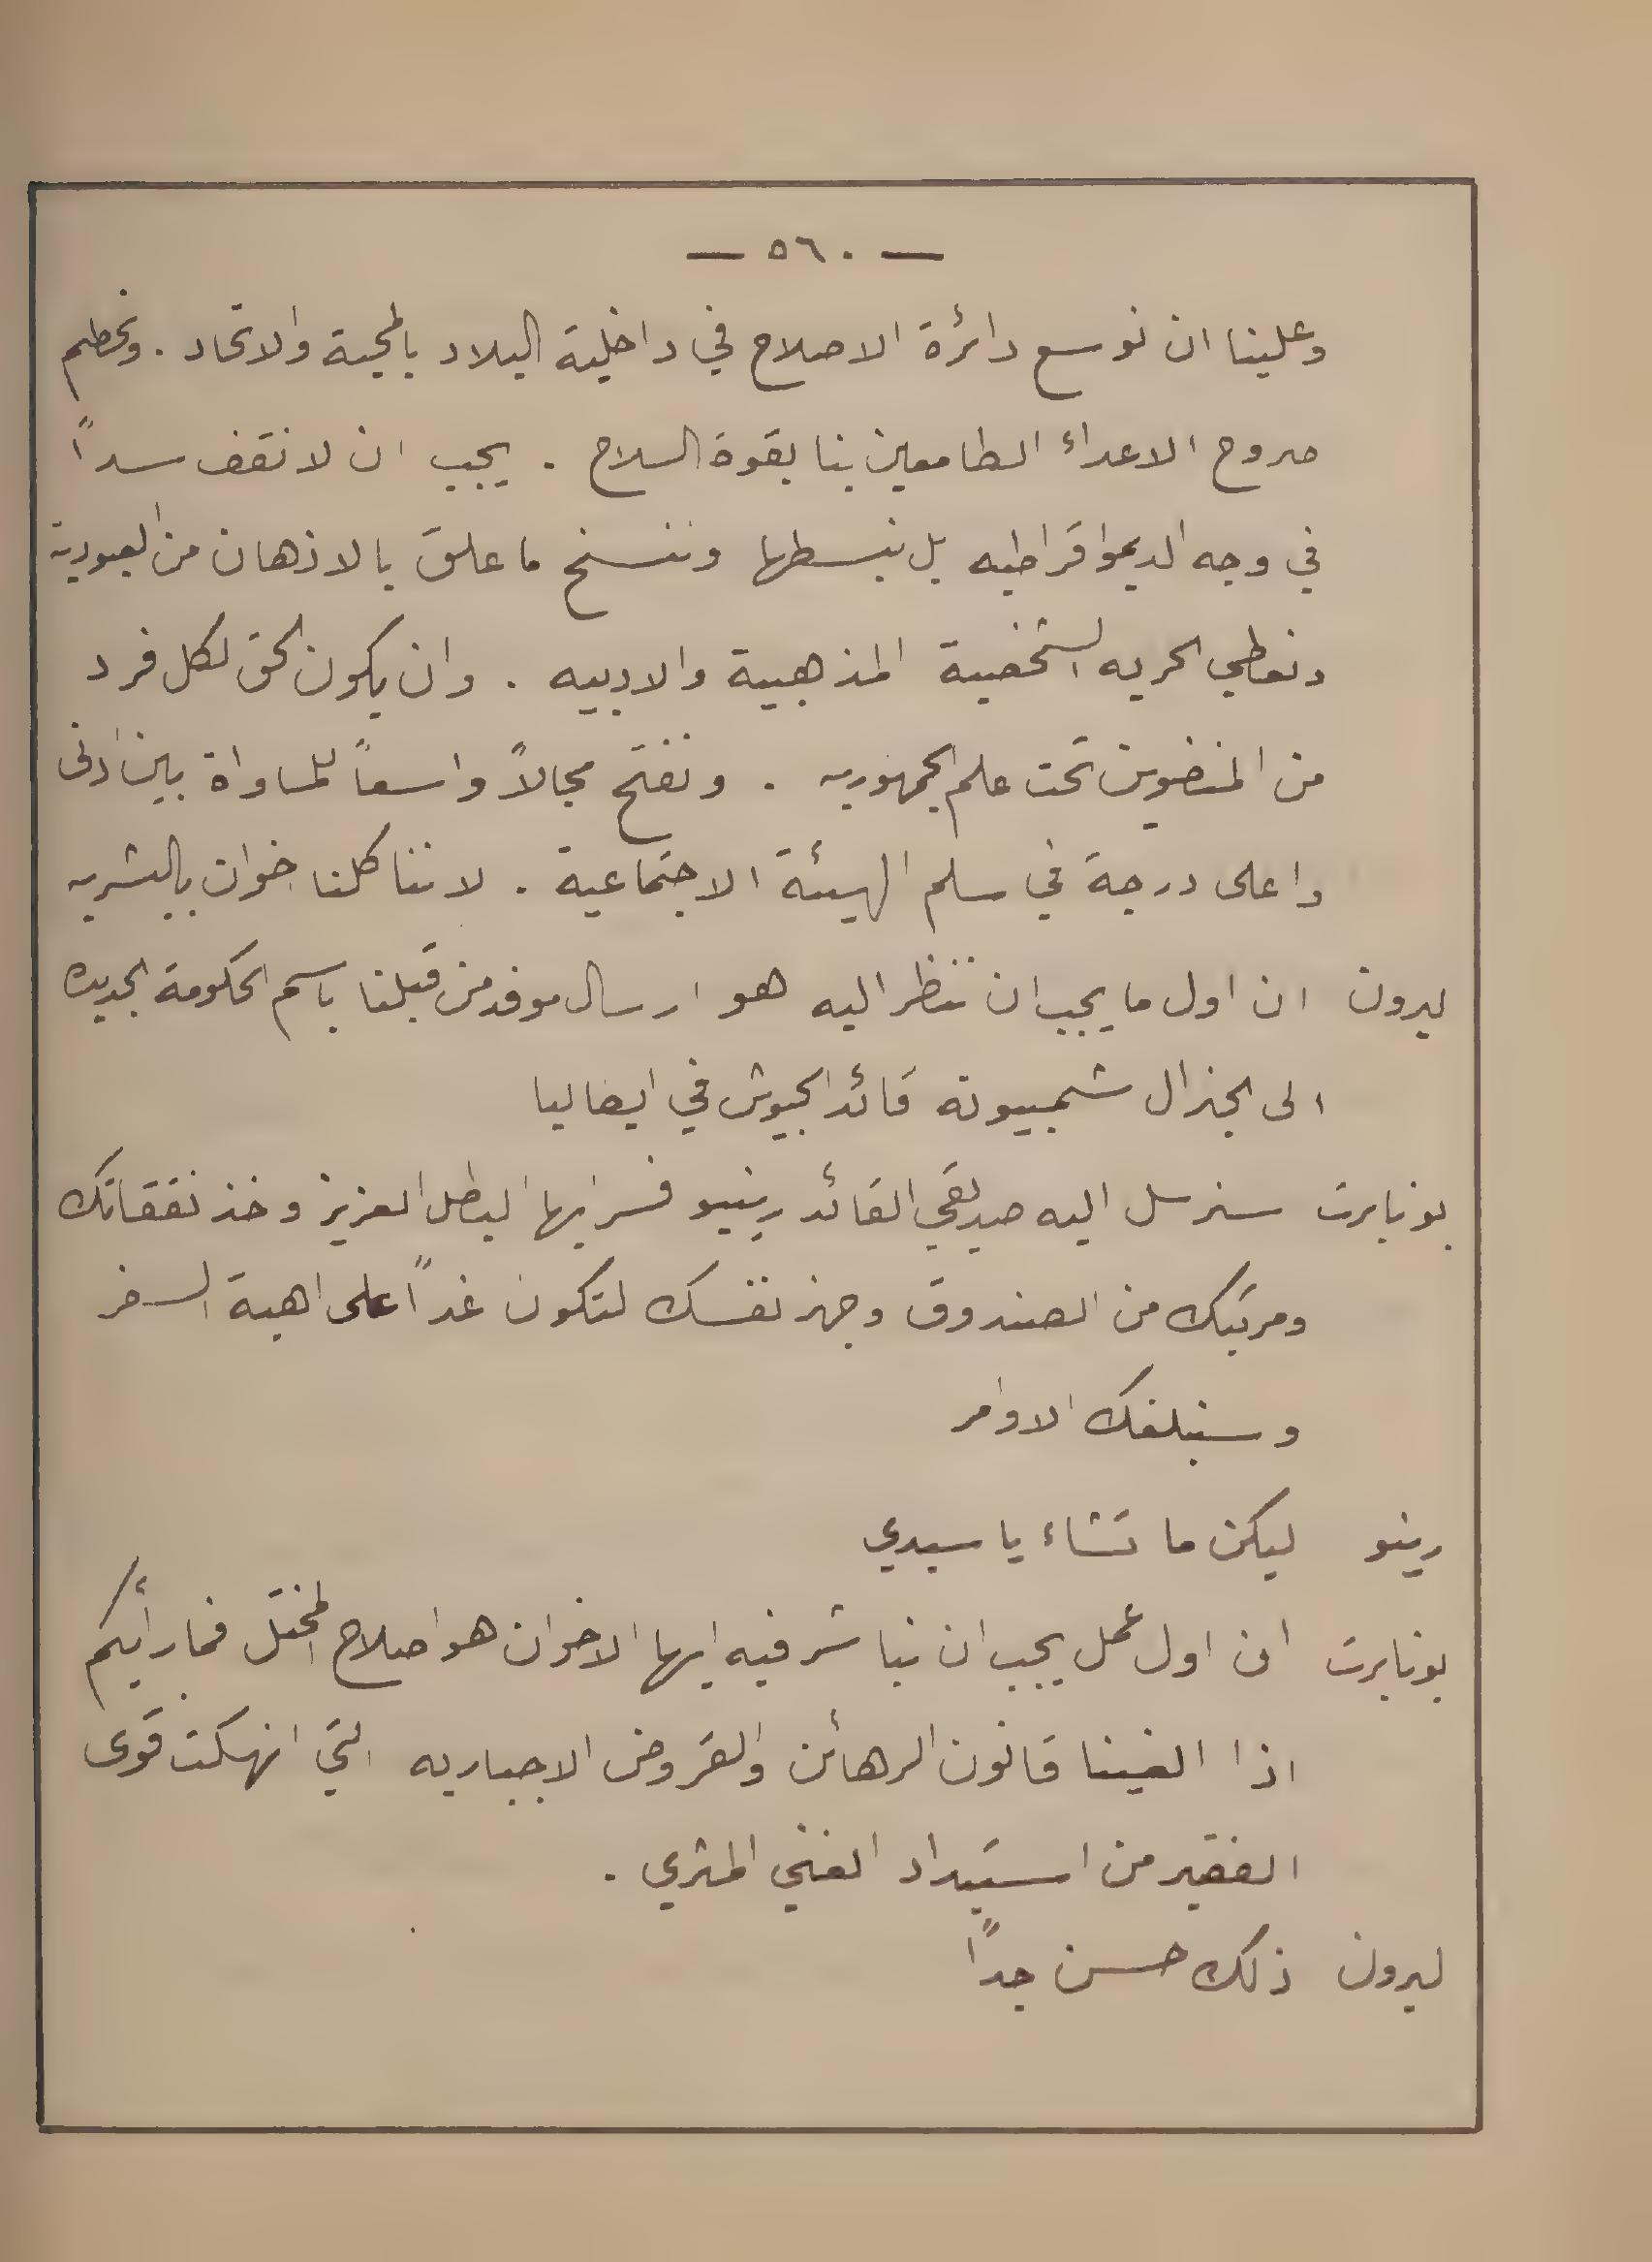 — ٥٦٠ —
وعلينا ان نوسع دائرة الاصلاح في داخلية البلاد بالمحبة والاتحاد . ونحطم
صروح الاعداء الطامعين بنا بقوة السلاح . يجب ان لا نقف سداً
في وجه الديموقراطيه بل نبسطها وننسخ ما علق بالاذهان من العبودية
ونعطي الحريه الشخصية المذهبية والادبيه . وان يكون الحق لكل فرد
من المنضوين تحت علم الجمهوريه . ونفتح مجالاً واسعاً للمساواة بين ادنى
واعلى درجة في سلم الهيئة الاجتماعية . لاننا كلنا اخوان بالبشريه
ليرون ان اول ما يجب ان ننظر اليه هو ارسال موفد من قبلنا باسم الحكومة الجديده
الى الجنرال شمبيونه قائد الجيوش في ايطاليا
بونابرت سنرسل اليه صديقي القائد رينيو فسر ايها البطل العزيز وخذ نفقاتك
ومرتبك من الصندوق وجهز نفسك لتكون غداً على اهبة السفر
وسنبلغك الاوامر
رينو ليكن ما تشاء يا سيدي
بونابرت ان اول عمل يجب ان نباشر فيه ايها الاخوان هو اصلاح المختل فما رأيكم
اذا الغينا قانون الرهائن والقروض الاجباريه التي انهكت قوى
الفقير من استبداد الغني المثري .
ليرون ذلك حسن جداً